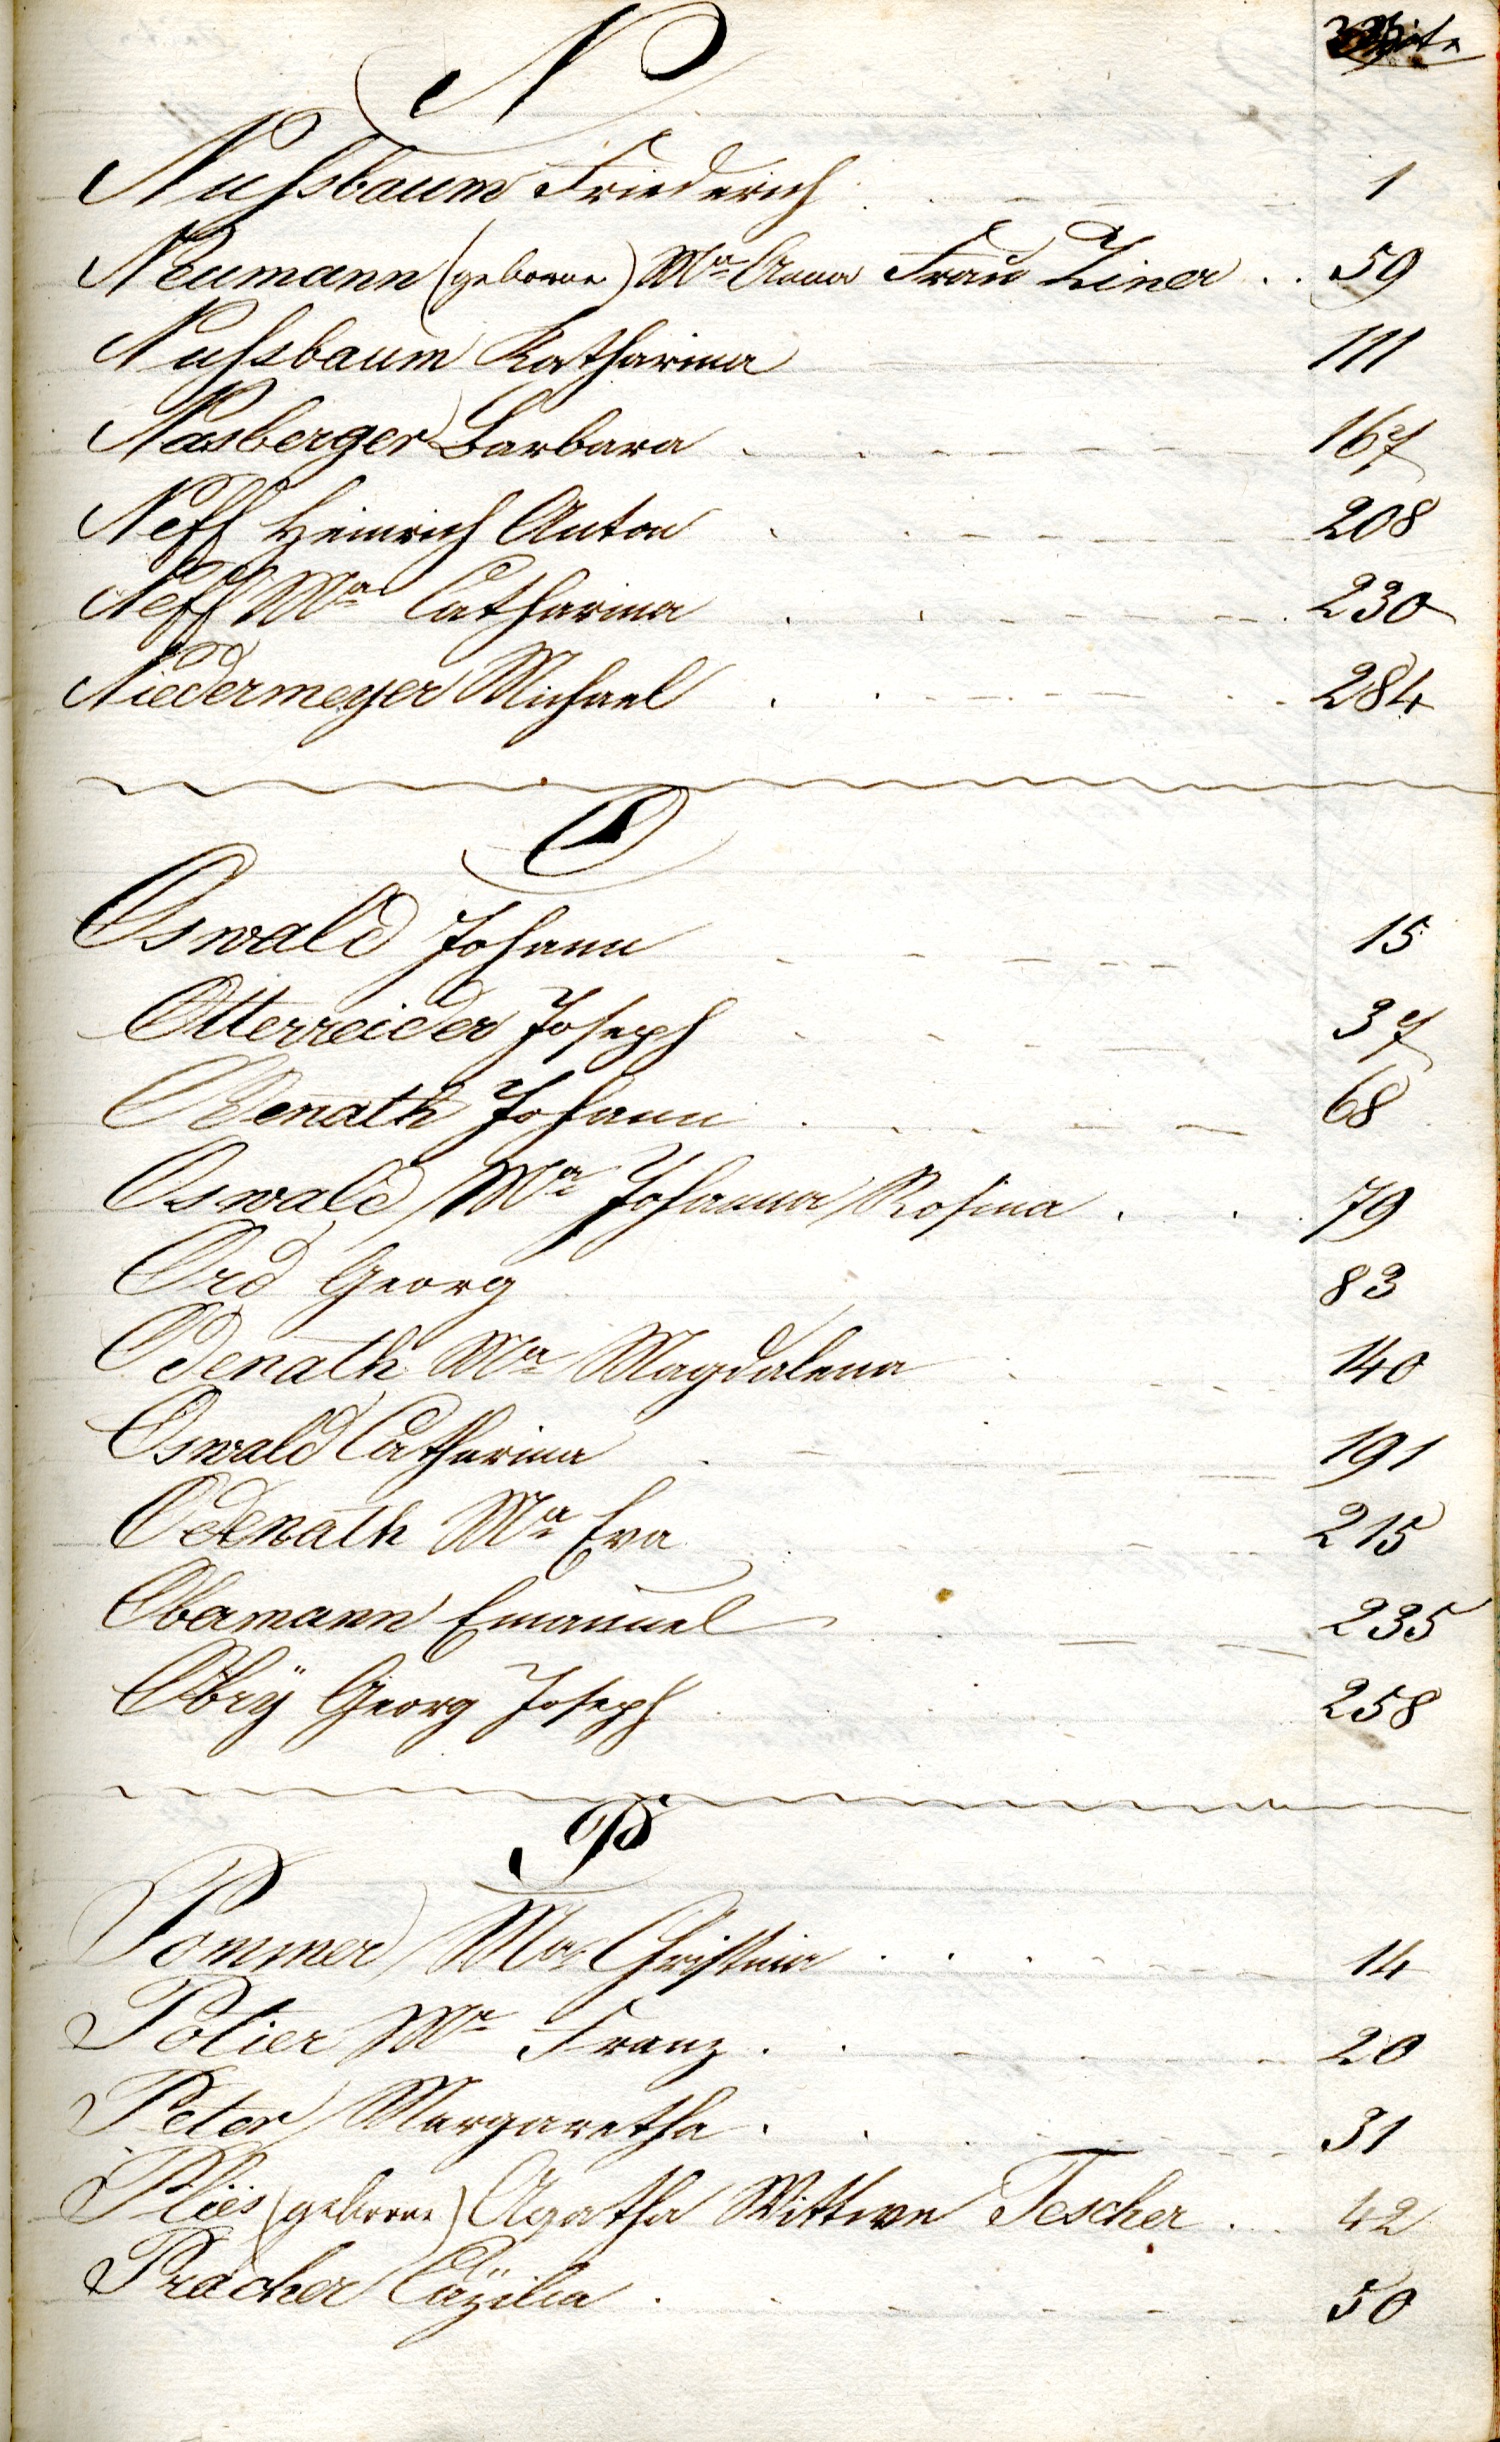 Seite
N
Nußbaum Friederich 1
Neumann (geborne) Ma Anna Frau Ziner 59
Nußbaum Katharina 111
Nasberger Barbara 167
Neff Heinrich Anton 208
Neff Ma Catharina 230
Niedermeyer Michael 284
O
Oswald Johann 15
Otterreider Joseph 37
Odenath Johann 68
Oswald Ma Johanna Rosina 79
Ord Georg 83
Odenath Ma Magdalena 140
Oswald Catharina 191
Odenath Ma Eva 215
Obermann Emanuel 235
Obrÿ Georg Joseph 258
P
Pommer Ma Christina 14
Potier Ma Franz 20
Peter Margaretha 31
Plies (geborne) Agatha Wittwe Tescher 42
Pracher Cäzilia 50